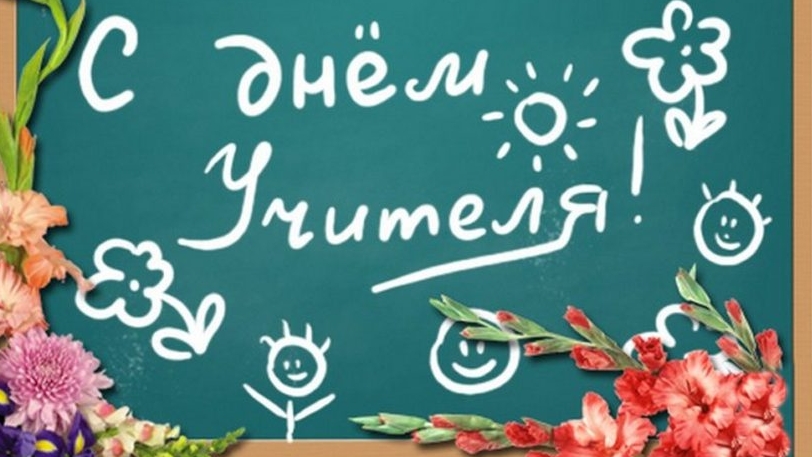 С днём
Учителя!